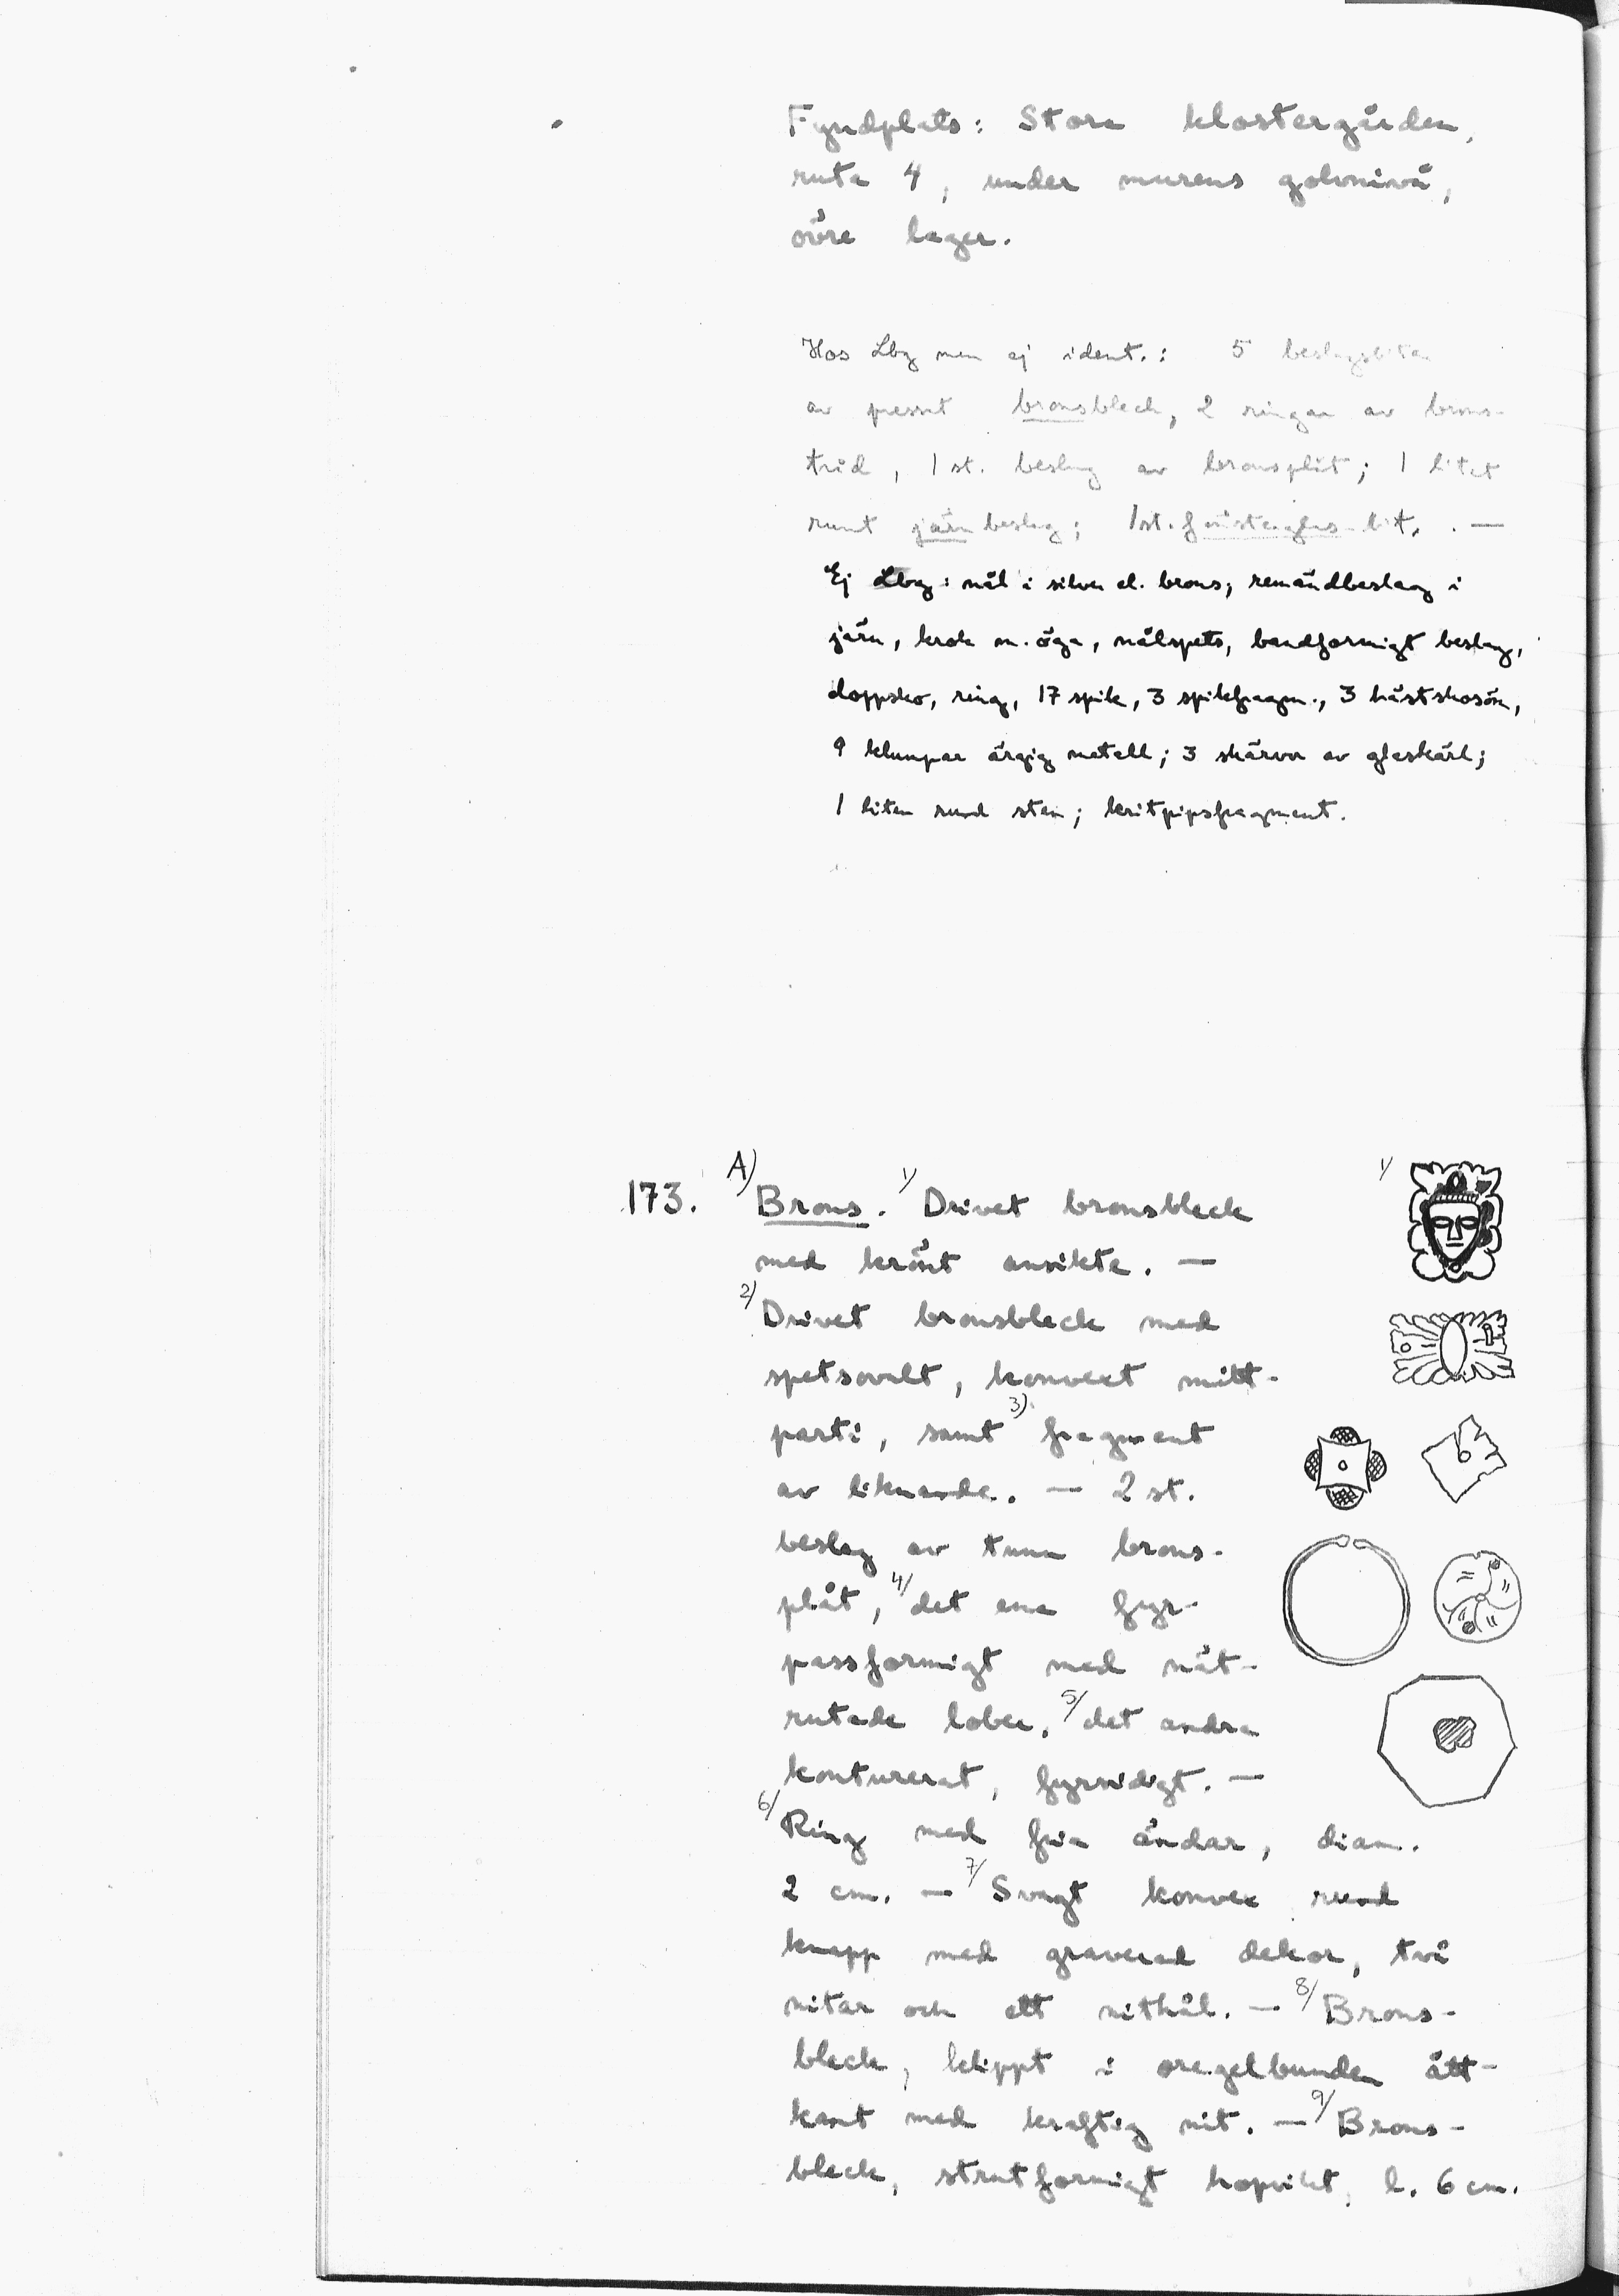 Fyndplats: Stora klostergården,
ruta 4, under murens golvnivå,
övre lager.
Hos Lbg men ej ident.: 5 beslagsbitar
av pressat bronsblech, 2 ringar av brons-
tråd, 1 st. beslag av bronsplåt; 1 litet
runt järnbeslag; 1 st. fönsterglas-bit. . —
Ej Lbg: nål i silver el. brons; remändbeslag i
järn, krok m. öga, nålspets, bandformigt beslag,
doppsko, ring, 17 spik, 3 spikfragm., 3 hästskosöm,
9 klumpar ärgig metall; 3 skärvor av glaskärl;
1 liten rund sten; kritpipsfragment.
173. A) Brons. 1/ Drivet bronsbleck 1/
med krönt ansikte. —
2/ Drivet bronsbleck med
spetsovalt, konvext mitt-
parti, samt 3) fragment
av liknande. — 2 st.
beslag av tunn brons-
plåt, 4/ det ena fyr-
passformigt med nät-
rutade lober, 5/ det andra
konturerat, fyrsidigt. —
6/ Ring med fria ändar, diam.
2 cm. — 7/ Svagt konvex rund
knapp med graverad dekor, två
nitar och ett nithål. — 8/ Brons-
bleck, klippt i oregelbunden ått-
kant med kraftig nit. — 9/ Brons-
bleck, strutformigt hopvikt, l. 6 cm.